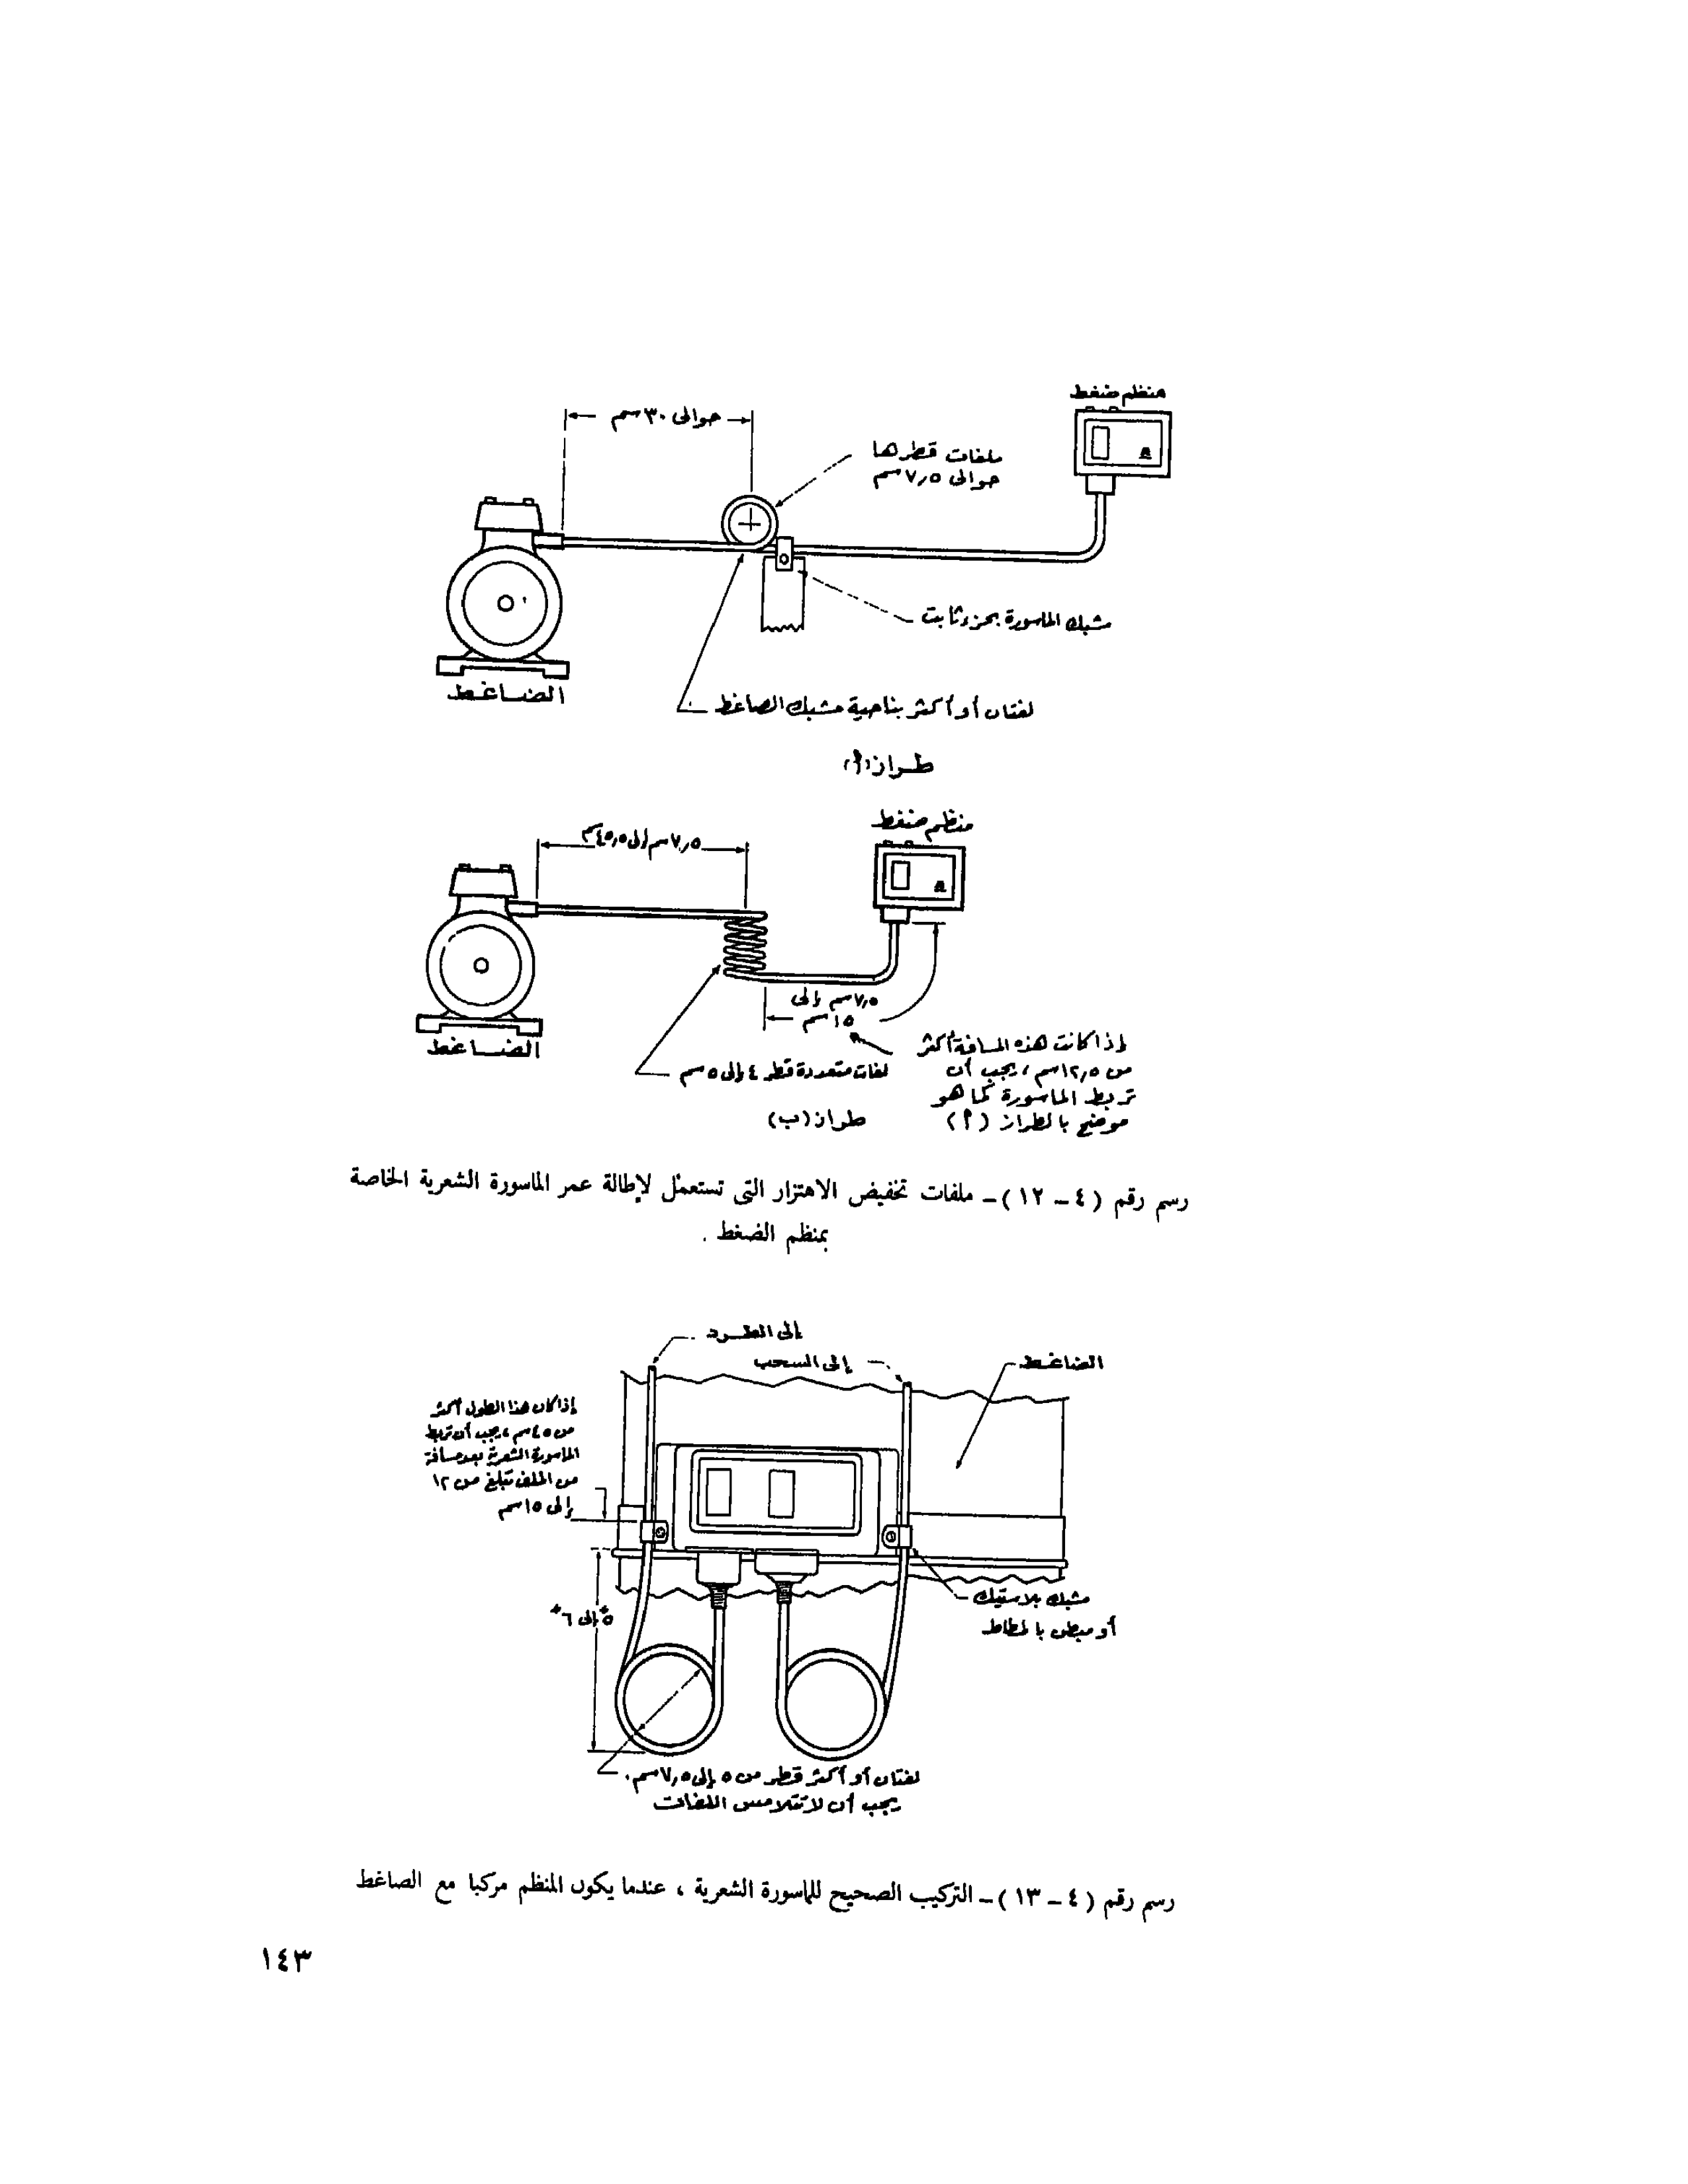 منظم ضغط
حوالى ٣٠ سم
ملفات قطرها
حوالى ٧٫٥ سم
مشبك الماسورة بجزء ثابت
الضاغط
لفتان أو أكثر بناحية مشبك الضاغط
طراز (أ)
منظم ضغط
٧٫٥ سم إلى ٤٥٫٥ سم
٧٫٥ سم إلى
١٥ سم
الضاغط
إذا كانت هذه المسافة أكثر
من ١٢٫٥ سم، يجب أن
تربط الماسورة كما هو
موضح بالطراز (أ)
لفات متعددة قطر ٤ إلى ٥ سم
طراز (ب)
رسم رقم (٤ – ١٢) – ملفات تخفيض الاهتزار التى تستعمل لإطالة عمر الماسورة الشعرية الخاصة
بمنظم الضغط .
إلى الطرد
إلى السحب
الضاغط
إذا كان هذا الطول أكثر
من ٤٥ سم، يجب أن تربط
الماسورة الشعرية بعد مسافة
من الملف تبلغ من ١٢
إلى ١٥ سم
مشبك بلاستيك
أو مبطن بالمطاط
٥" إلى ٦"
لفتان أو أكثر قطر من ٥ إلى ٧٫٥ سم.
يجب أن لا تتلامس اللفات
رسم رقم (٤ – ١٣) – التركيب الصحيح للماسورة الشعرية ، عندما يكون المنظم مركبا مع الضاغط
١٤٣